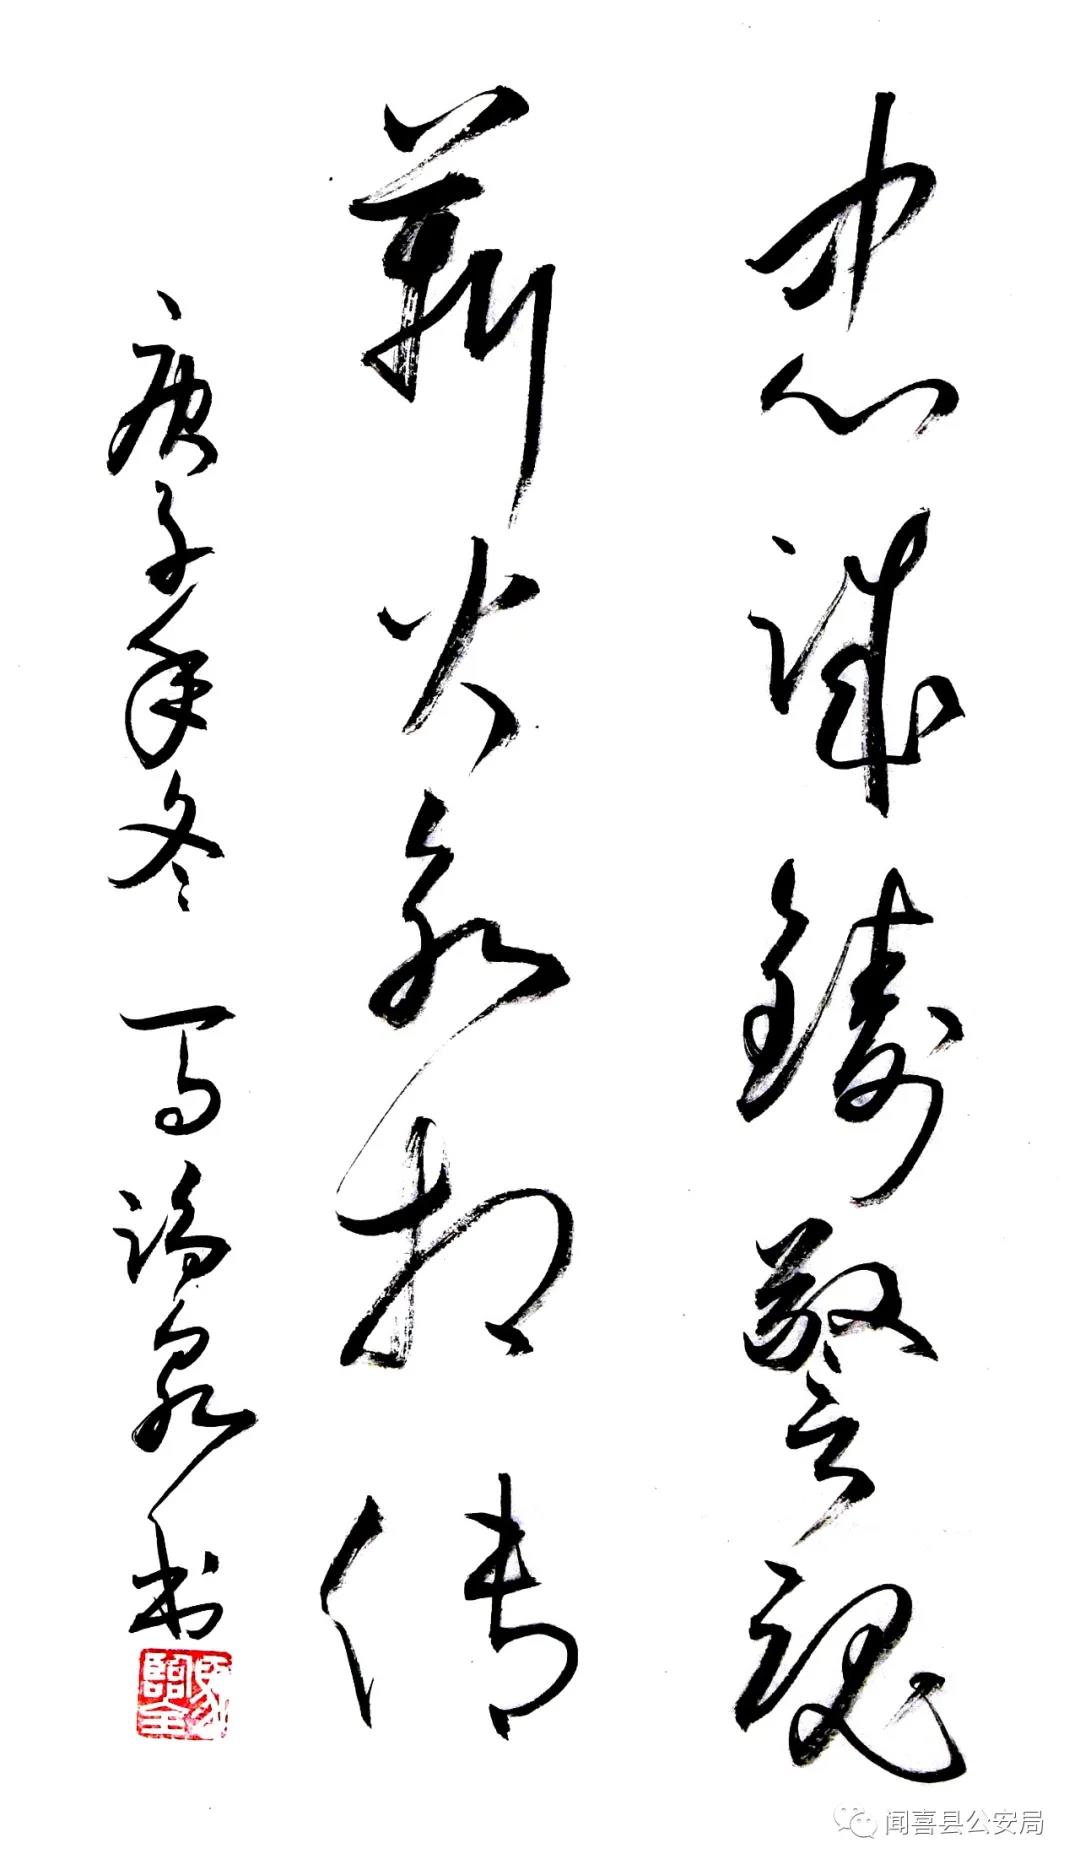 忠诚铸警魂
薪火永相传
庚子年冬 马临泉书
闻喜县公安局